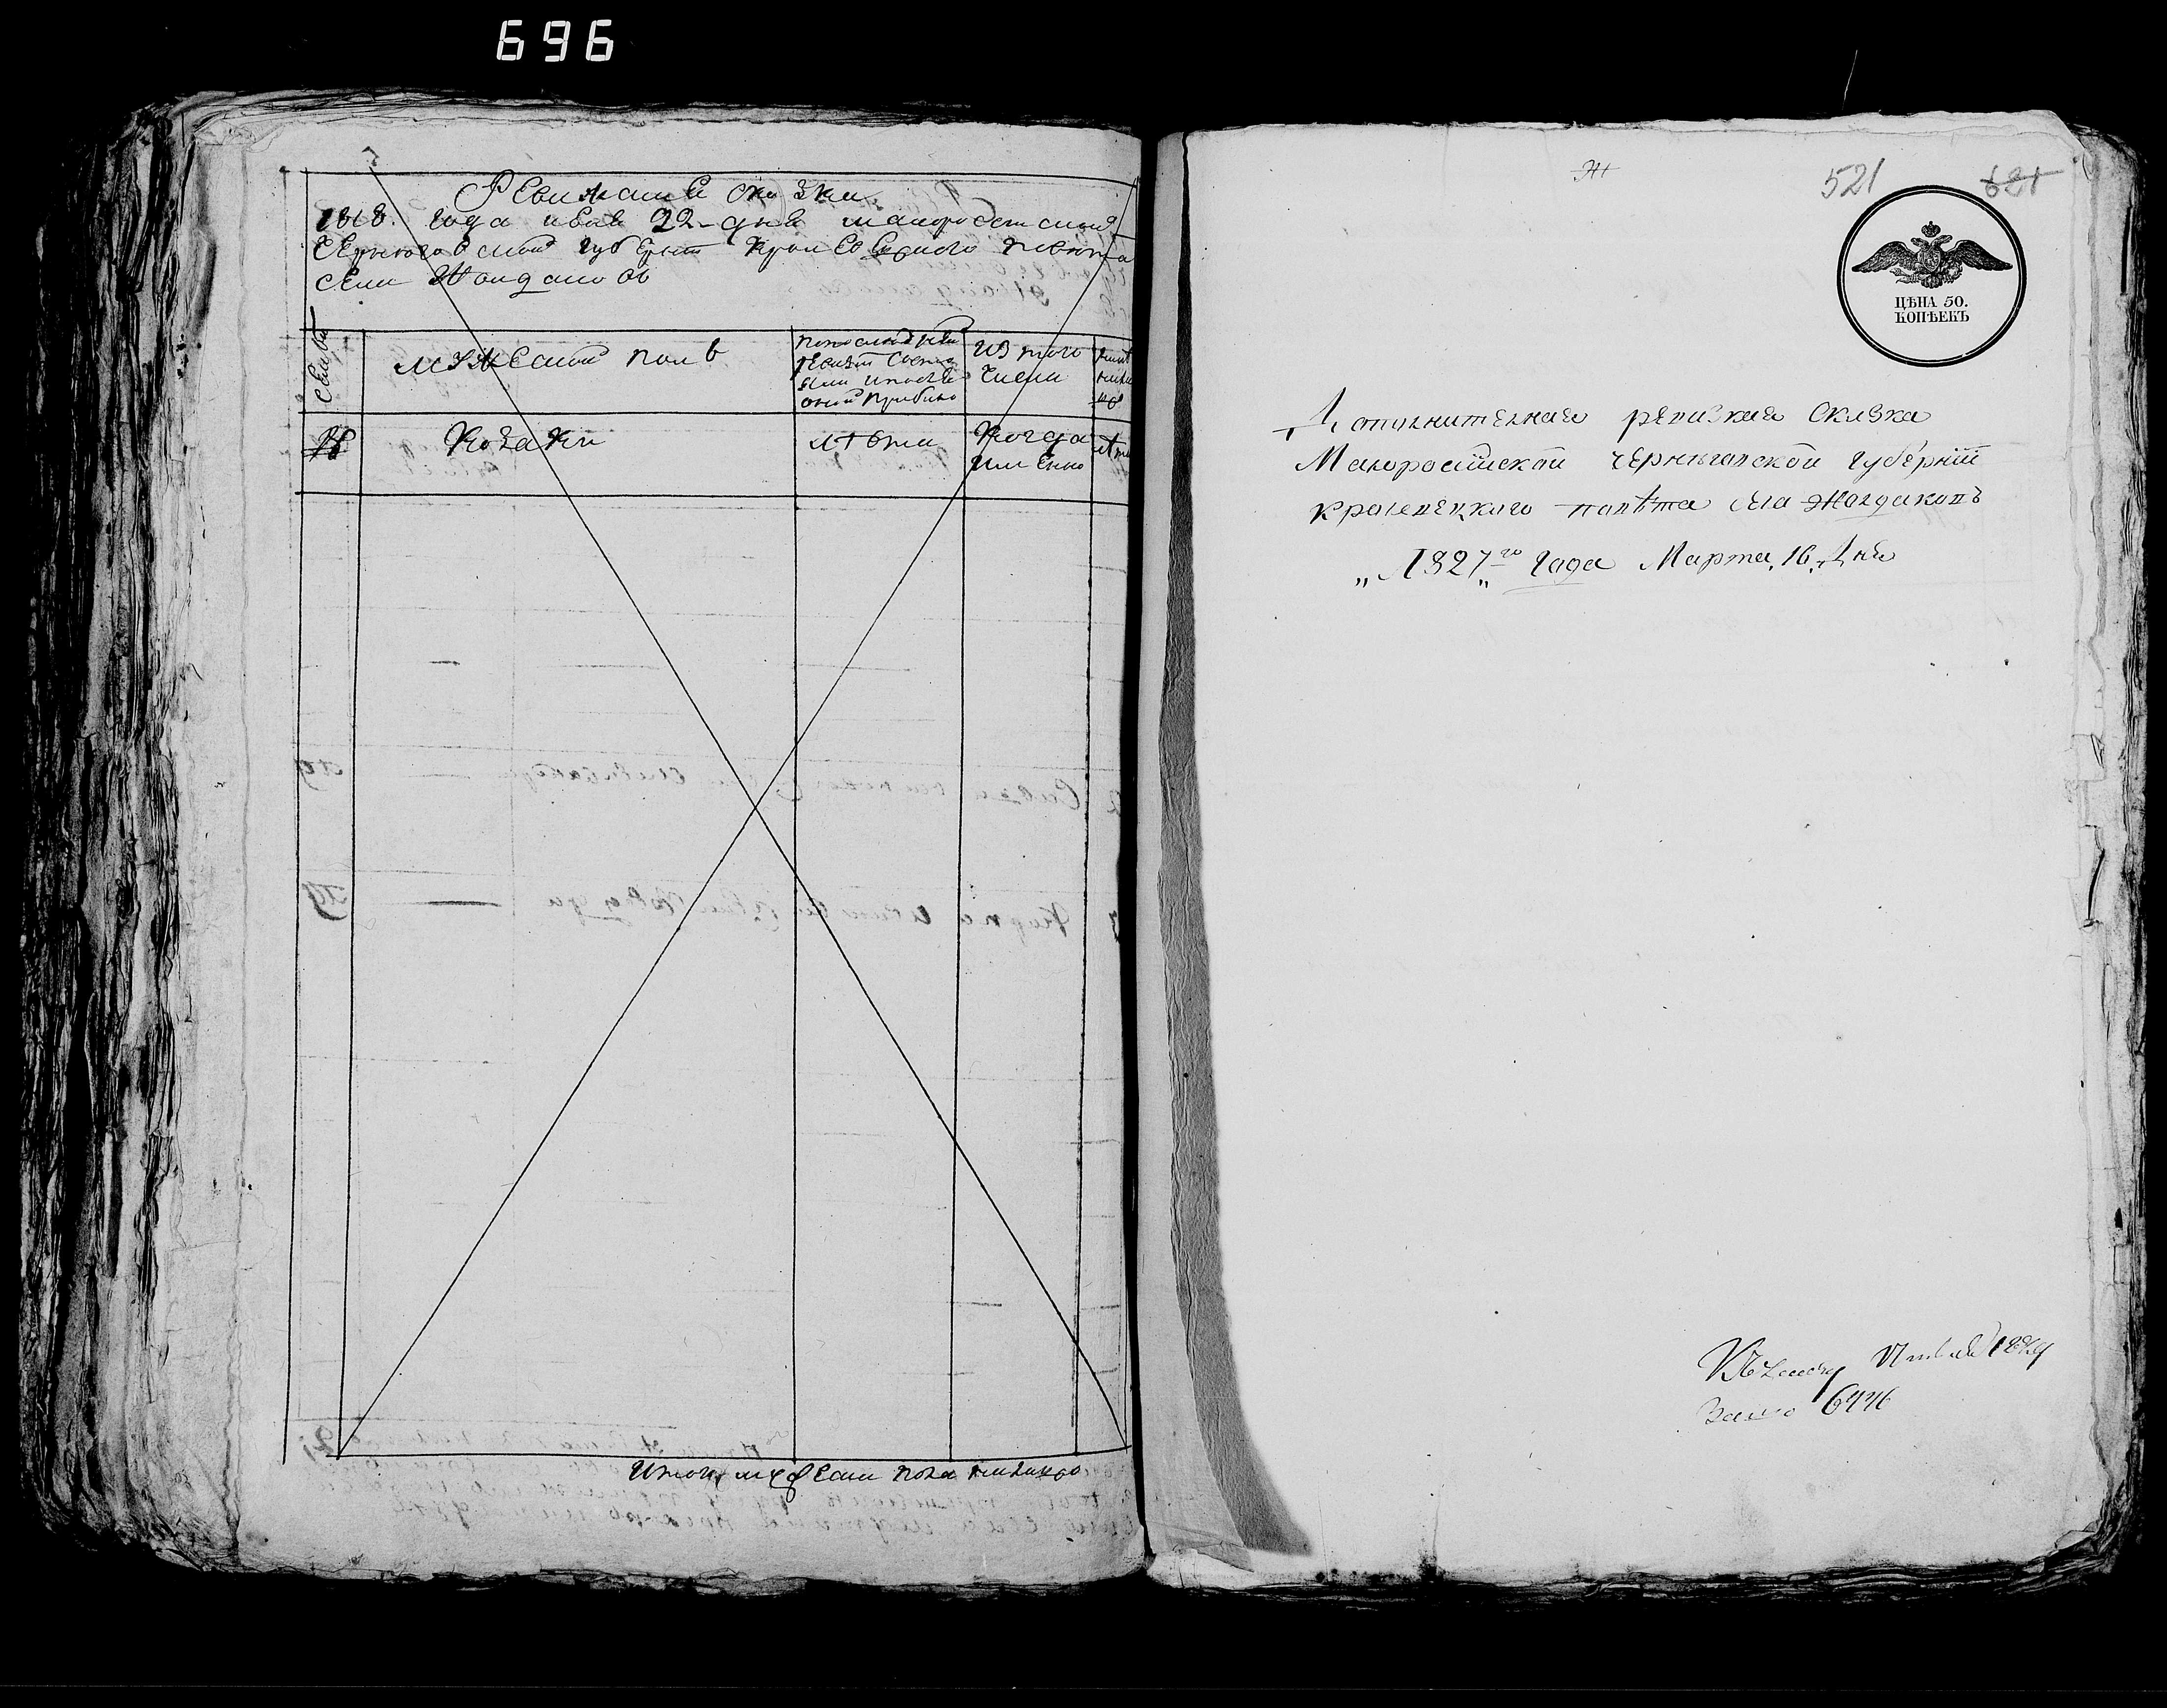 696
Ревижская скаска
1818. года июля 22. дня малороссийской
Черниговской губернии кролевецкого повета
села Жолдаков
Семьи
мужеской пол
по последней
ревизии состо
яли и после
оной прибыло
из того
числа
№
Козаки
лета
Когда
именно
лета
Итого мужеска пола наличного
521
621
ЦѢНА 50.
КОПѢЕКЪ
Дополнителная ревизкая сказка
Малоросийской черниговской губернїи
кролевецкого повѣта села Жолдаковъ
„1827„го года Марта „16„ Дня
За № 6446